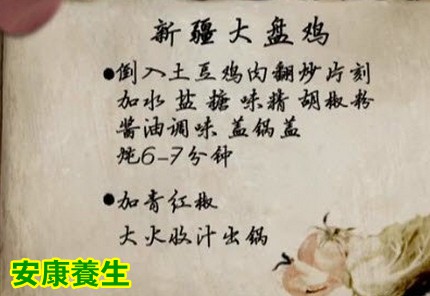 新疆大盘鸡
●倒入土豆鸡肉翻炒片刻
加水 盐 糖 味精 胡椒粉
酱油调味 盖锅盖
炖6-7分钟
●加青红椒
大火收汁出锅
安康養生